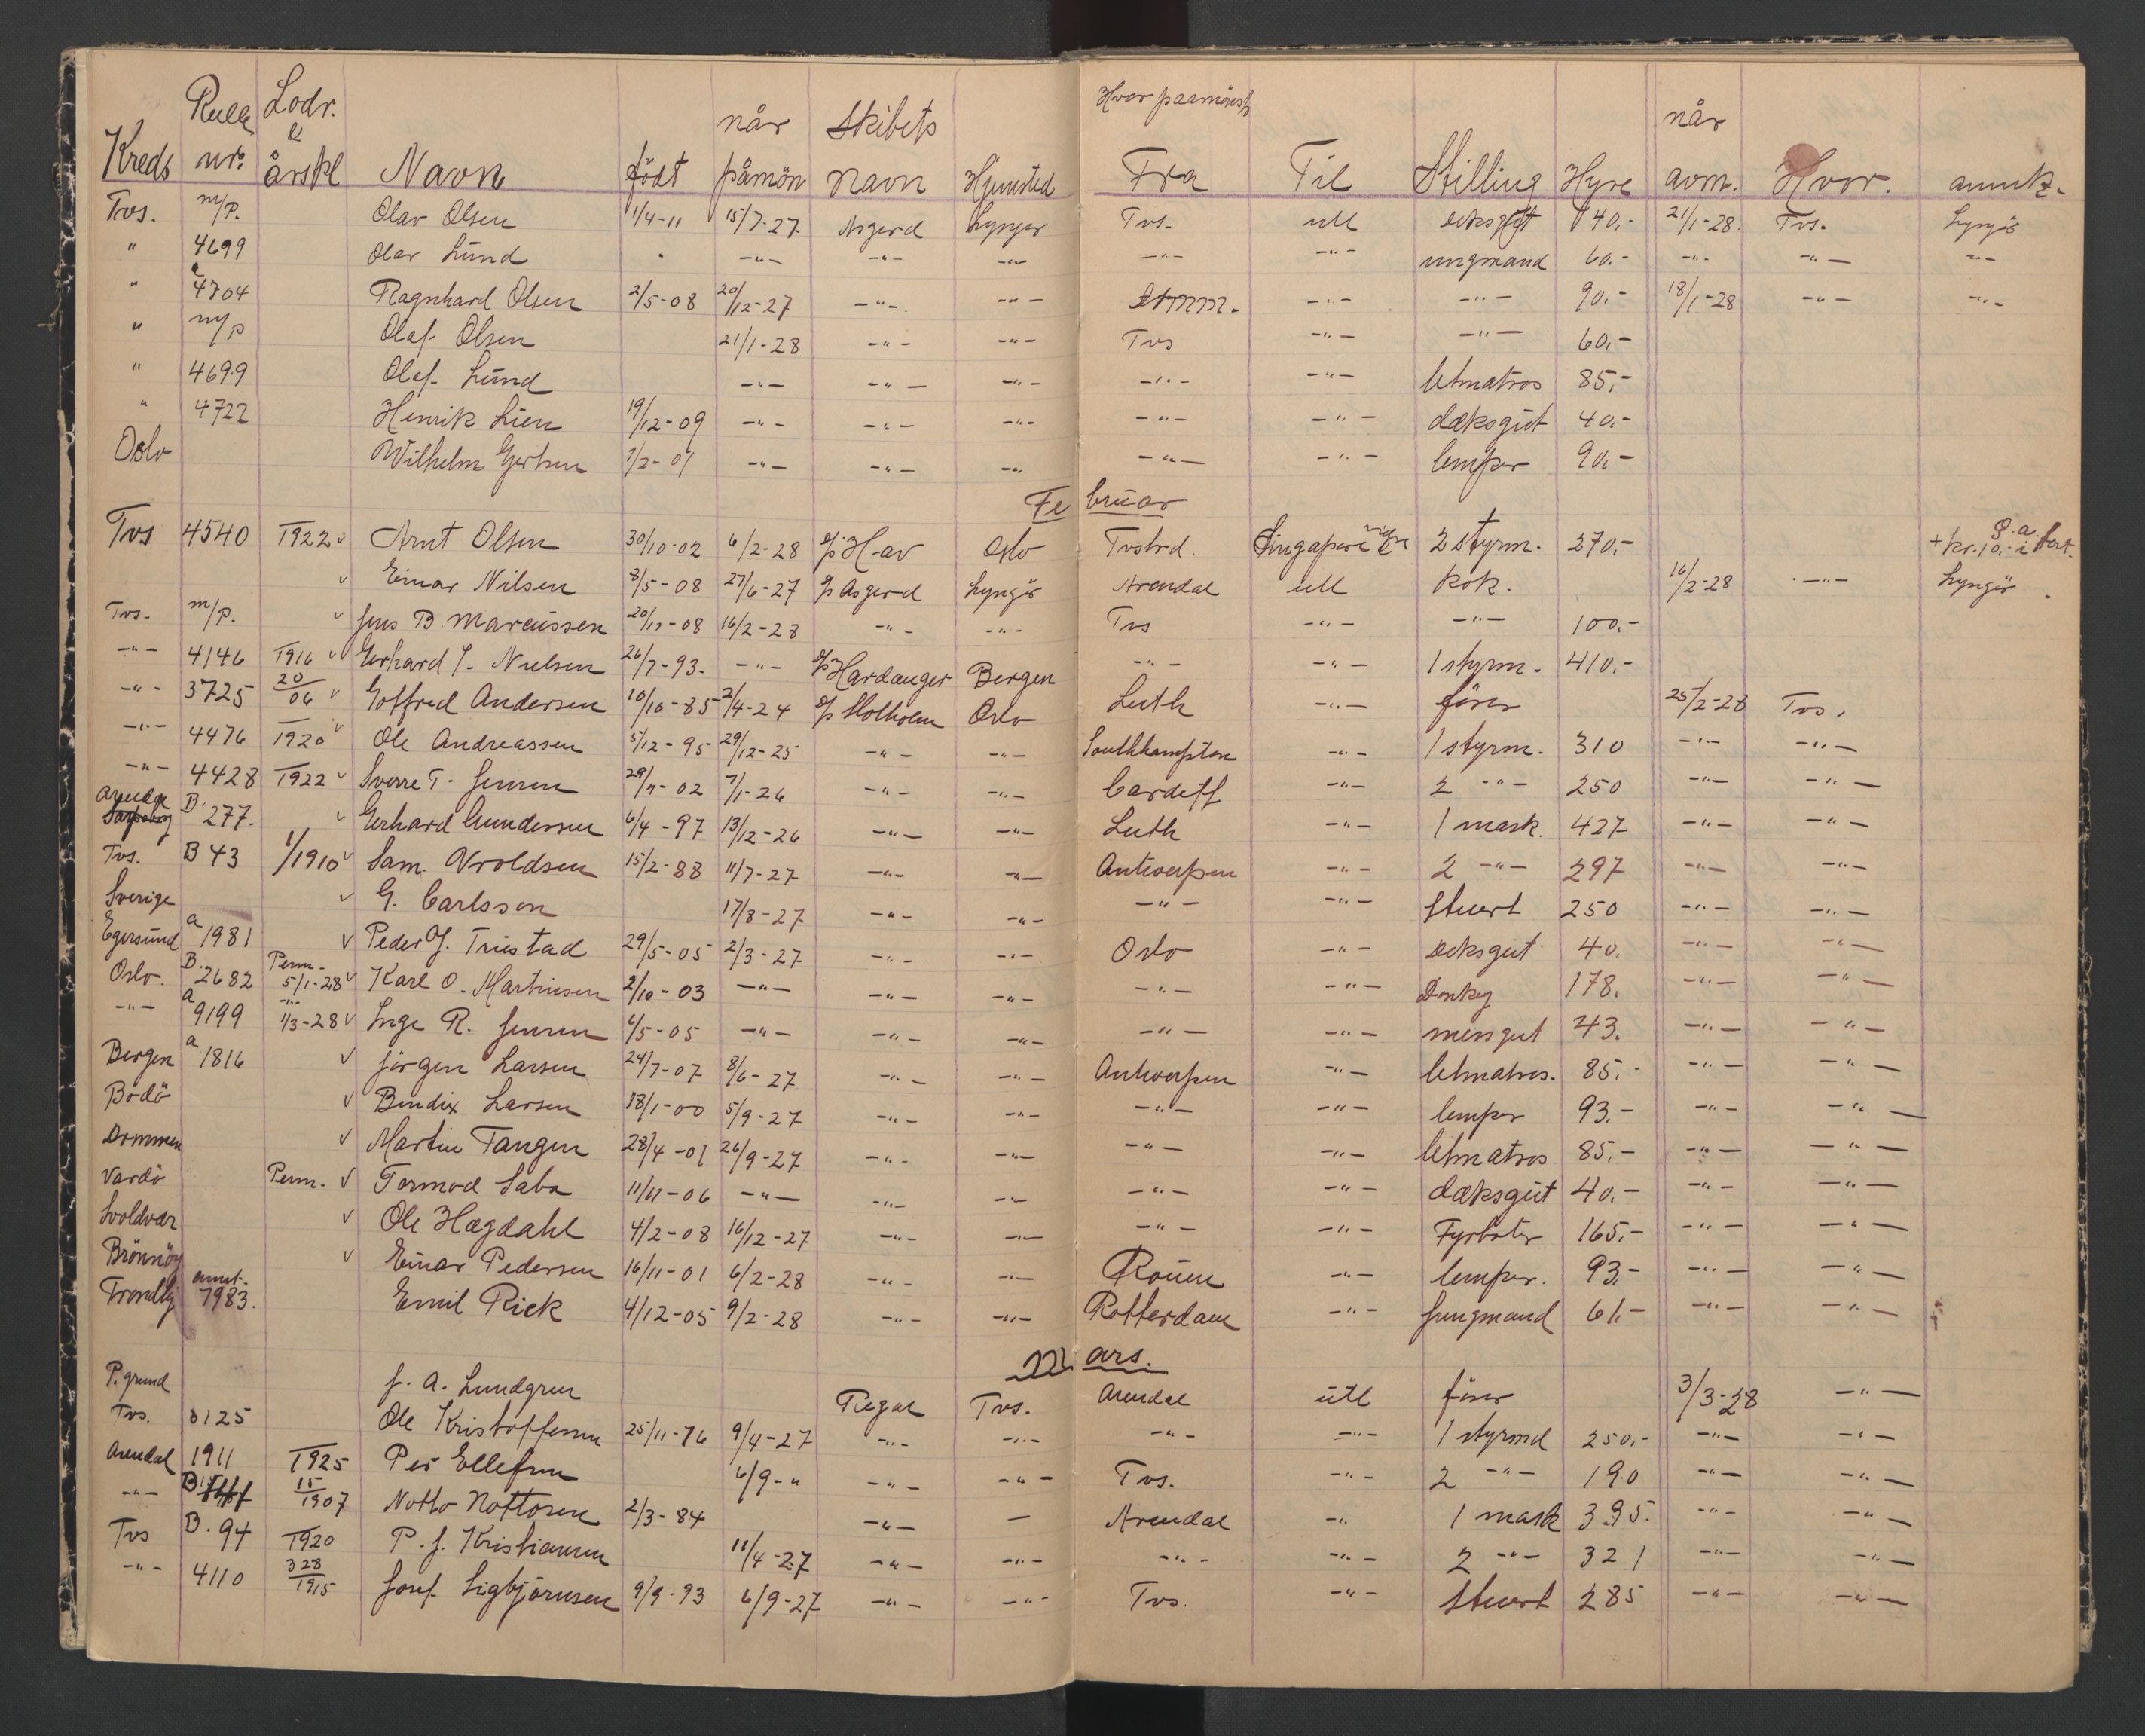 Hvor paamönst
Rulle Lodr. når Skibets når
Kreds nr. & årskl Navn födt påmön navn Hjemsted Fra Til Stilling Hyre avm. Hvor. anmk.
Tvs. m/p. Olav Olsen 1/4-11 15/7-27 Asgerd Lyngör Tvs. utl deksgut 40.- 21/1-28. Tvs. Lyngör
" 4699 Olav Lund -"- -"- -"- -"- -"- ungmand 60.- -"- -"- -"-
" a 4704 Ragnhard Olsen 2/5-08 20/12-27 -"- -"- -"- -"- 90.- 18/1-28 -"- -"-
" m/p Olaf Olsen 21/1-28 -"- -"- Tvs -"- -"- 60.-
" 4699 Olaf Lund -"- -"- -"- -"- -"- letmatros 85.-
" 4722 Henrik Lien 19/12-09 -"- -"- -"- -"- -"- dæksgut 40.-
Oslo Wilhelm Gertsen 7/2-01 -"- -"- -"- -"- -"- lemper 90.-
Februar
Tvs 4540 T1922 v Arnt Olsen 30/10-02 6/2-28 s/s Hav Oslo Tvstrd. Singapore 2 styrm. 270.- + kr. 10.- i fart.
v Einar Nilsen 8/5-08 27/6-27 s/s Asgerd Lyngör Arendal utl kok. 16/2-28 -"- Lyngör
Tvs. m/p. v Jens B. Marcussen 20/11-08 16/2-28 -"- -"- Tvs -"- -"- 100.-
-"- 4146 T916 v Gerhard J. Nielsen 26/7-93. -"- s/s Hardanger Bergen -"- -"- 1 styrm. 410.-
-"- 3725 20/06 v Gotfred Andersen 10/10-85 2/4-24 s/s Slotholm Oslo Leith -"- förer 25/2-28 Tvs.
-"- 4476 T1920 v Ole Andreassen 5/12-95 29/12-25 -"- -"- Southhampton -"- 1 styrm. 310 -"- -"-
-"- 4428 T1922 v Sverre T. Jensen 29/7-02 7/1-26 -"- -"- Cardeff -"- 2 -"- 250 -"- -"-
Arendal B. 277. v Gerhard Gundersen 6/4-97 13/12-26 -"- -"- Leith -"- 1 mask. 427 -"- -"-
Tvs. B 43 1/1910 v Sam. Aroldsen 15/2-88 11/7-27 -"- -"- Antwerpen -"- 2 -"- 297 -"- -"-
Sverige v G. Carlsson 17/8-27 -"- -"- -"- -"- Stuert 250 -"- -"-
Egersund a 1981 v Peder J. Tristad 29/5-05 2/3-27 -"- -"- Oslo -"- deksgut 40. -"- -"-
Oslo. B. 2682 Perm. 5/1-28 v Karl O. Martinsen 2/10-03 -"- -"- -"- -"- -"- Donkey 178. -"- -"-
-"- a 9199 -"- 1/3-28 v Inge R. Jensen 6/5-05 -"- -"- -"- -"- -"- messgut 43. -"- -"-
Bergen a 1816 v Jörgen Larsen 24/7-07 8/6-27 -"- -"- Antwerpen -"- letmatros. 85.- -"- -"-
Bodö v Bendix Larsen 18/1-00 5/9-27 -"- -"- -"- -"- lemper 93.- -"- -"-
Drmmen v Martin Tangen 28/4-01 26/9-27 -"- -"- -"- -"- letmatros 85.- -"- -"-
Vardö Perm. v Tormod Saba 11/11-06 -"- -"- -"- -"- -"- dæksgut 40.- -"- -"-
Svoldvær v Ole Hægdahl 4/2-08 16/12-27 -"- -"- -"- -"- Fyrböter 165.- -"- -"-
Brönnöy v Einar Pedersen 16/11-01 6/2-28 -"- -"- Rouen -"- lemper. 93.- -"- -"-
Trondhj annt. 7983. Emil Rick 4/12-05 9/2-28 -"- -"- Rotterdam -"- Jungmand 61.- -"- -"-
Mars.
P. grund J. A. Lundgren Regal Tvs. Arendal utl förer 3/3-28 -"-
Tvs. 3125 Ole Kristoffersen 25/11-76 9/4-27 -"- -"- -"- -"- 1 styrmd 250.- -"- -"-
Arendal 1911 T925 Per Ellefsen 6/9-" -"- -"- Tvs. -"- 2 -"- 190 -"- -"-
-"- B 15/1907 Notto Nottosen 2/3-84 -"- - Arendal -"- 1 mask 395. -"- -"-
Tvs B. 94 T920 P. J. Kristiansen 11/4-27 -"- -"- -"- -"- 2 -"- 321 -"- -"-
-"- 4110 328/1915 Josef Sigbjörnsen 9/9-93 6/9-27 -"- -"- Tvs. -"- Stuert 285 -"- -"-